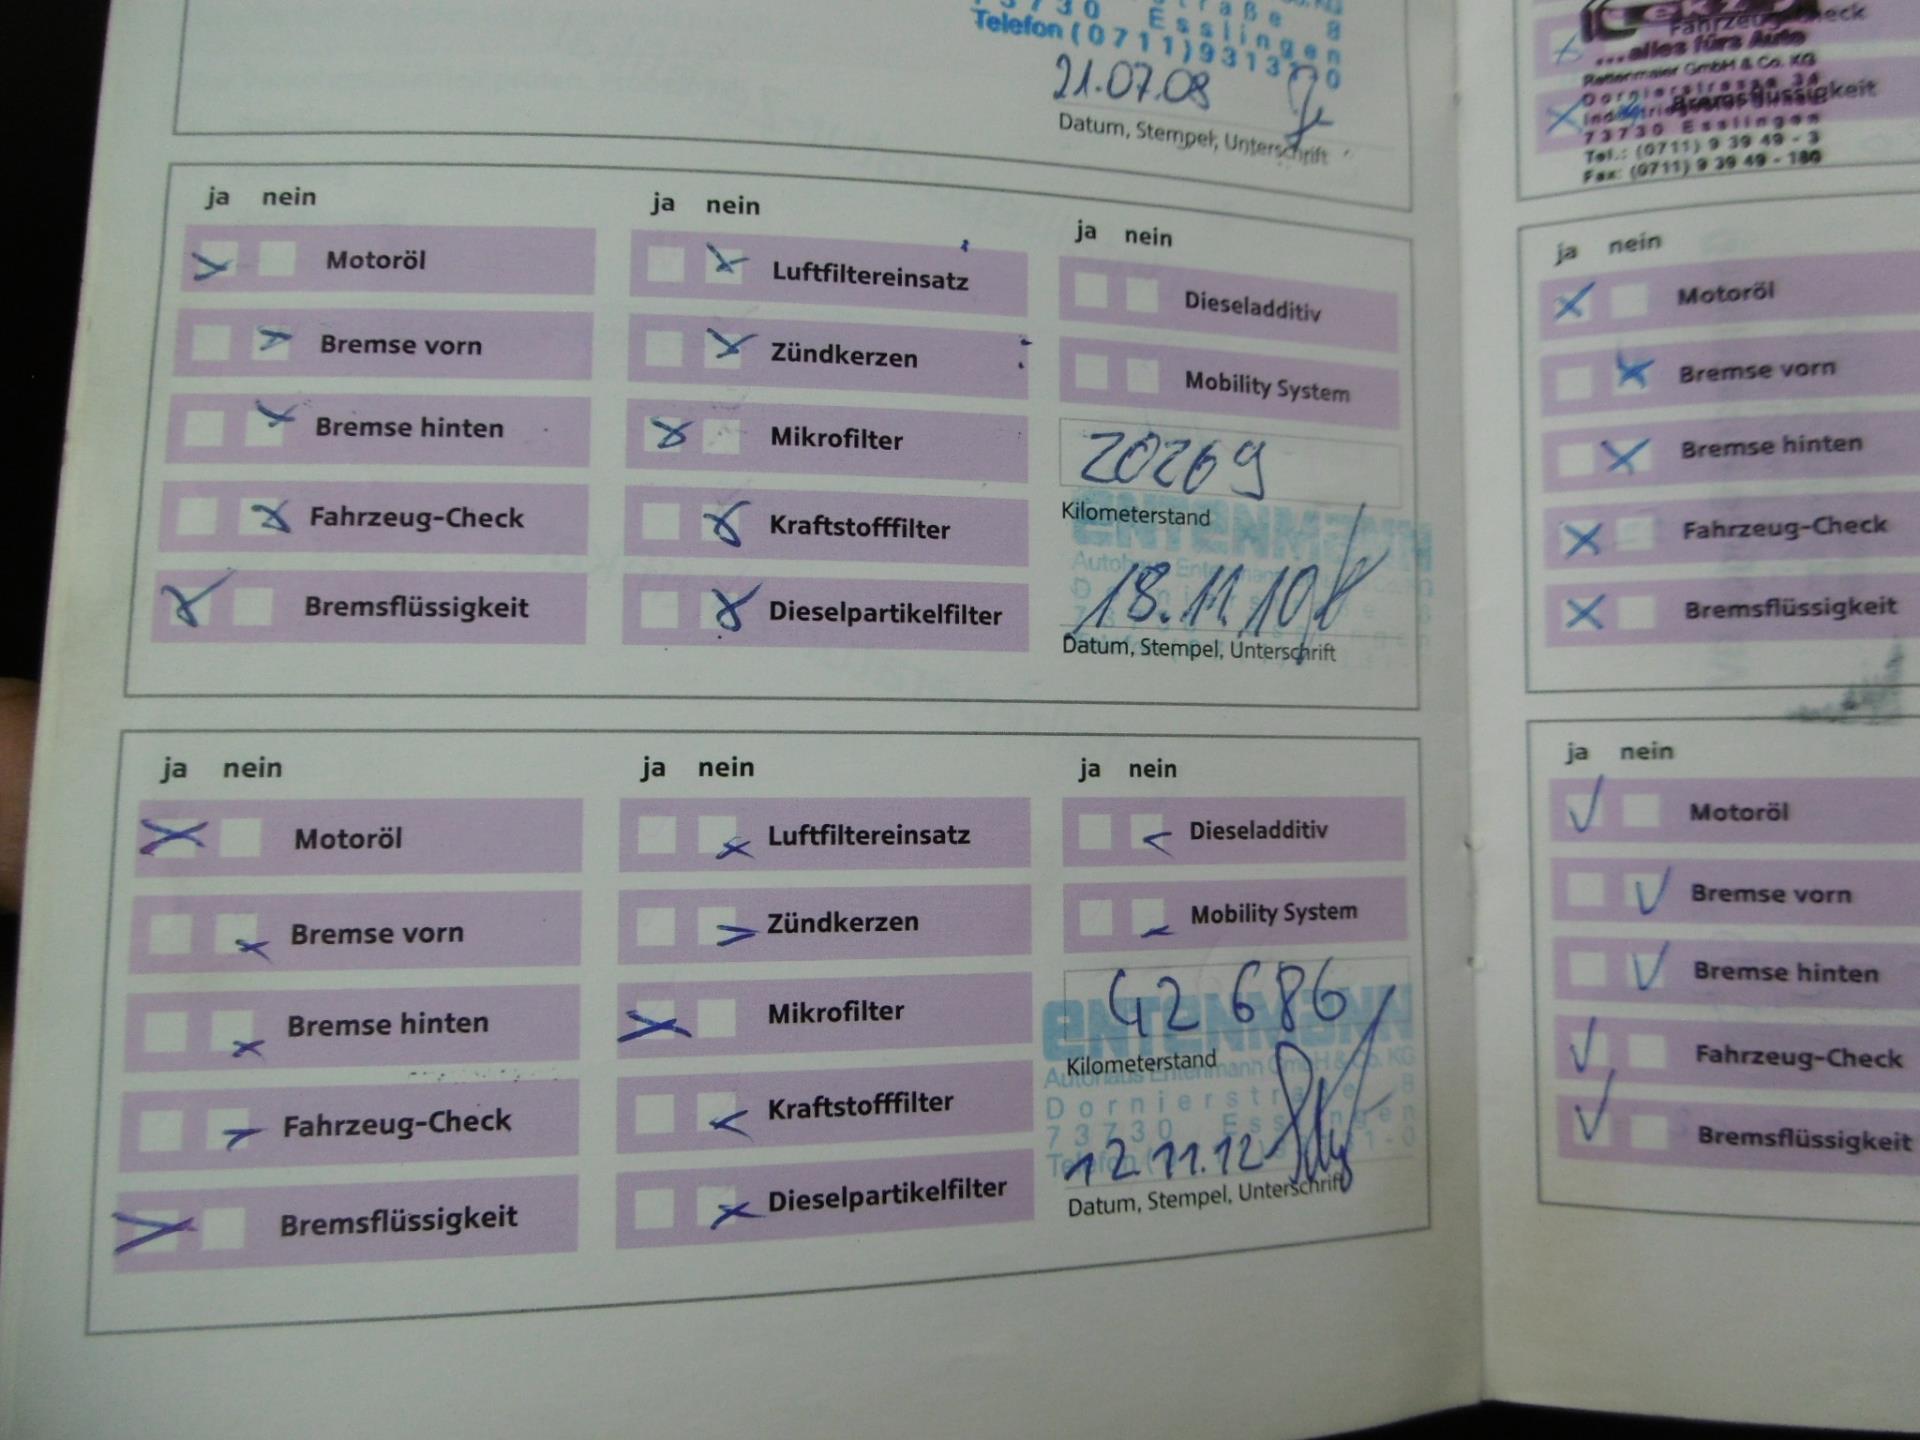 73730 Esslingen
Telefon (0711) 931310
21.07.08
Datum, Stempel, Unterschrift
ja nein
Motoröl
Bremse vorn
Bremse hinten
Fahrzeug-Check
Bremsflüssigkeit
ja nein
Luftfiltereinsatz
Zündkerzen
Mikrofilter
Kraftstofffilter
Dieselpartikelfilter
ja nein
Dieseladditiv
Mobility System
20269
Kilometerstand
ENTENMANN
Autohaus Entenmann
18.11.10
Datum, Stempel, Unterschrift
ja nein
Motoröl
Bremse vorn
Bremse hinten
Fahrzeug-Check
Bremsflüssigkeit
ja nein
Luftfiltereinsatz
Zündkerzen
Mikrofilter
Kraftstofffilter
Dieselpartikelfilter
ja nein
Dieseladditiv
Mobility System
42686
ENTENMANN
Kilometerstand
Autohaus Entenmann GmbH & Co. KG
Dornierstraße 8
73730 Esslingen
Telefon
12.11.12
Datum, Stempel, Unterschrift
Fahrzeug-Check
...alles fürs Auto
Rettenmaier GmbH & Co. KG
Dornierstrasse 34
Bremsflüssigkeit
73730 Esslingen
Tel.: (0711) 9 39 49 - 3
Fax: (0711) 9 39 49 - 180
ja nein
Motoröl
Bremse vorn
Bremse hinten
Fahrzeug-Check
Bremsflüssigkeit
ja nein
Motoröl
Bremse vorn
Bremse hinten
Fahrzeug-Check
Bremsflüssigkeit